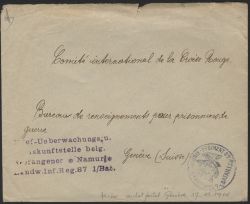 Comité international de la Croix Rouge.
Bureau de renseignements pour prisonniers de
guerre
ief-Ueberwachungs,u.
skunftstelle belg.
efangener e Namurje
Landw.Inf.Reg.87 1/Bat.
Genève (Suisse)